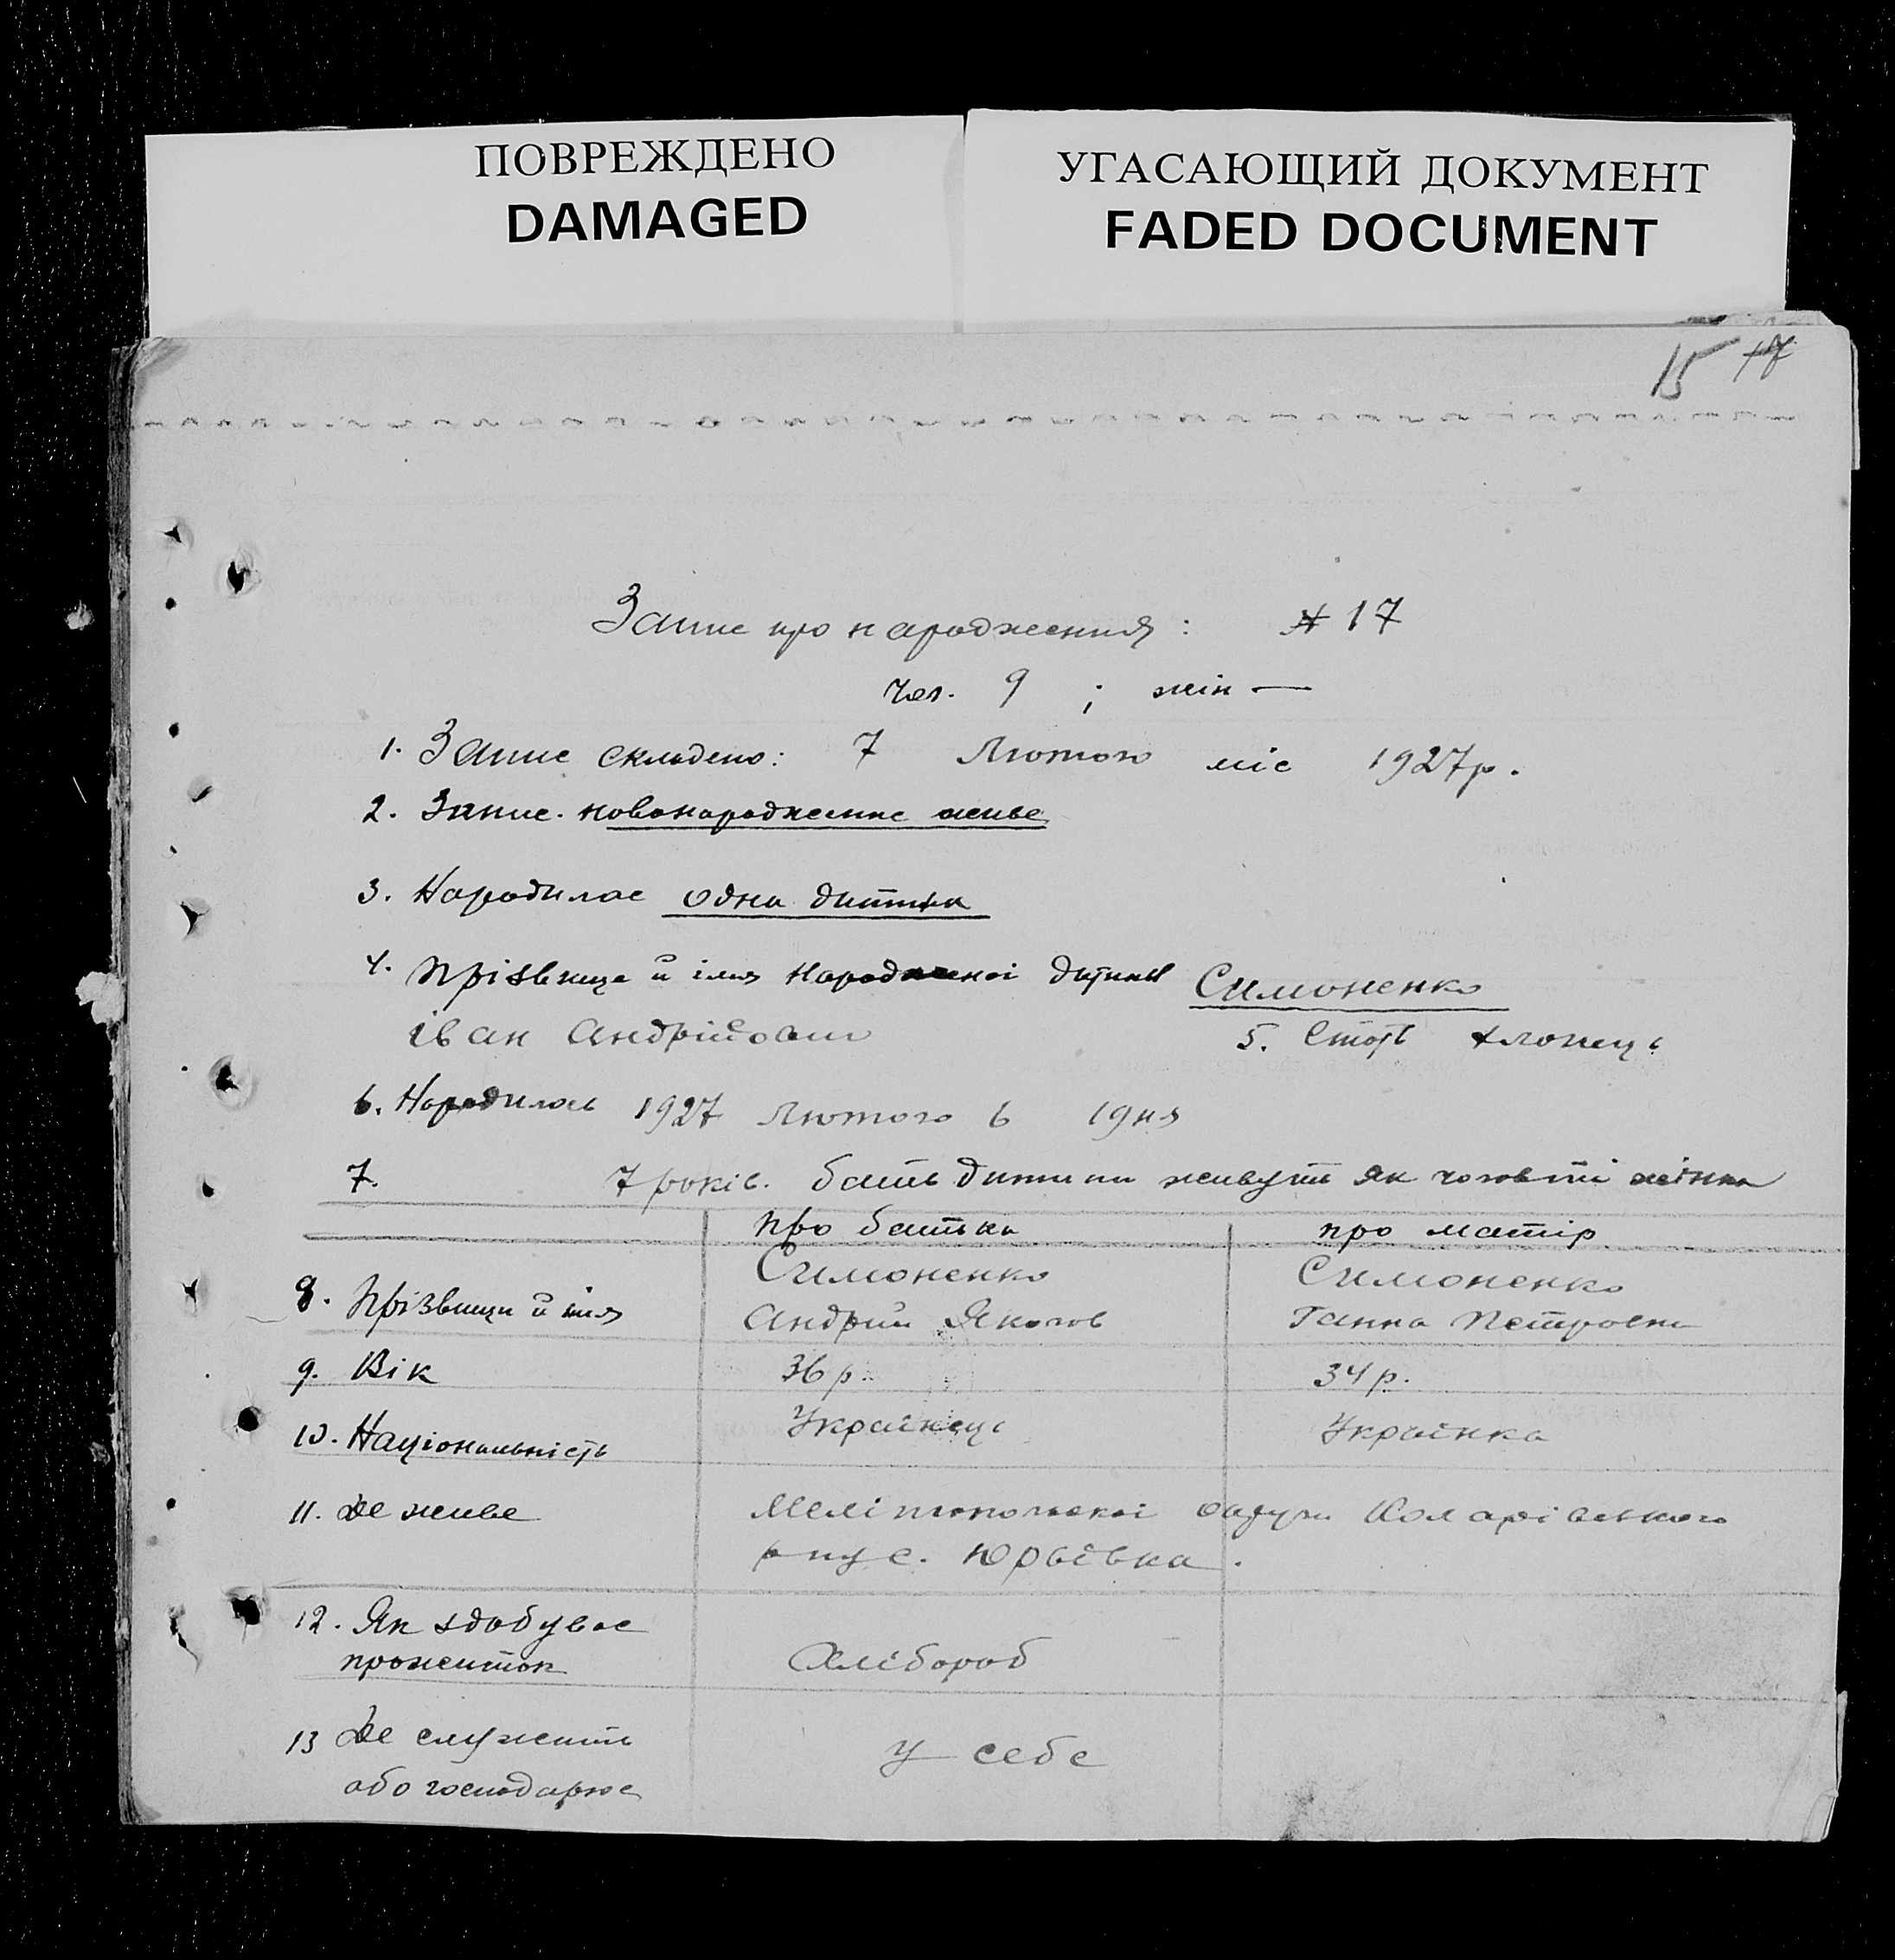 ПОВРЕЖДЕНО
DAMAGED
УГАСАЮЩИЙ ДОКУМЕНТ
FADED DOCUMENT
15 17
Запис про народження : № 17
Чол. 9 ; жін —
1. Запис складено: 7 Лютого міс 1927р.
2. Запис. новонародженне живе
3. Народилас одна дитина
4. прізвище й імя народженої дитини Симоненко
іван Андрійович 5. Стать хлопець
6. Народилась 1927 Лютого 6 дня
7. 7 років. бать дитини живуть як чоловік і жінка
про батька про матір
8. прізвище й імя Симоненко Симоненко
Андрій Яковов Ганна Петровна
9. Вік 36 р. 34 р.
10. Національність Українець Українка
11. Де живе Мелітопольскої округи Коларівського
р-ну с. Юрьївка.
12. Як здобувае
прожиток Хлібороб
13 Де служить
або господарює у себе